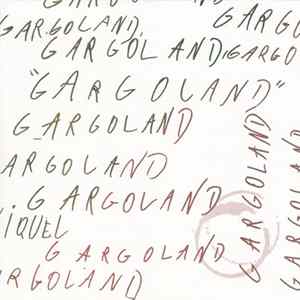 GARGOLAND
GARGOLAND
GAR.GOLAND.
GARGOL AND,
GARGO
"GARGOLAND"
G_ARGOLAND
ARGOLAND
. G ARGOLAND
IQUEL
G ARGOLAND
RGOLAND
GARGOLAND
GARGOLAND